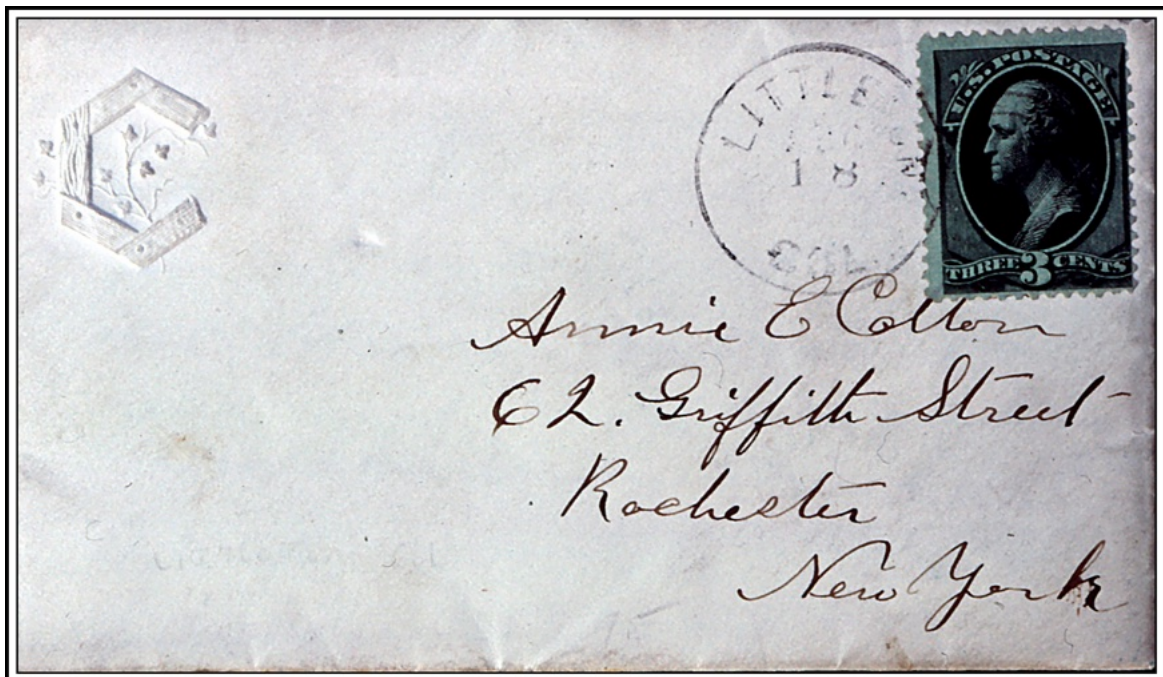 LITTLETON
18
COL.
U.S. POSTAGE
THREE 3 CENTS
Annie E Colton
62. Griffith Street
Rochester
New York